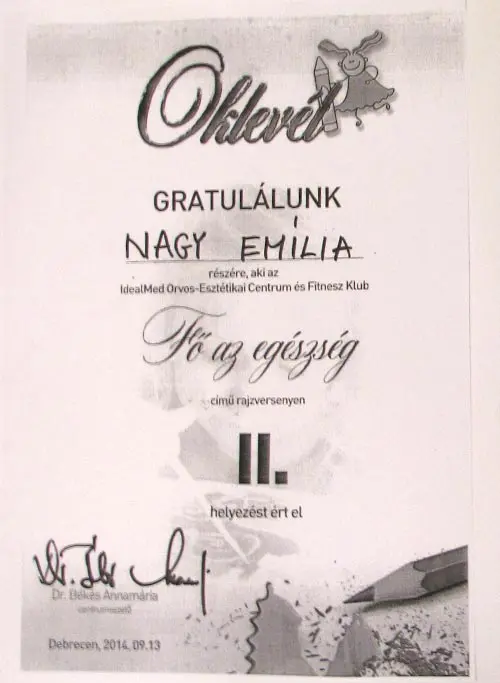 Oklevél
GRATULÁLUNK
NAGY EMÍLIA
részére, aki az
IdealMed Orvos-Esztétikai Centrum és Fitnesz Klub
Fő az egészség
című rajzversenyen
II.
helyezést ért el
Dr. Békés Annamária
centrumvezető
Debrecen, 2014. 09.13